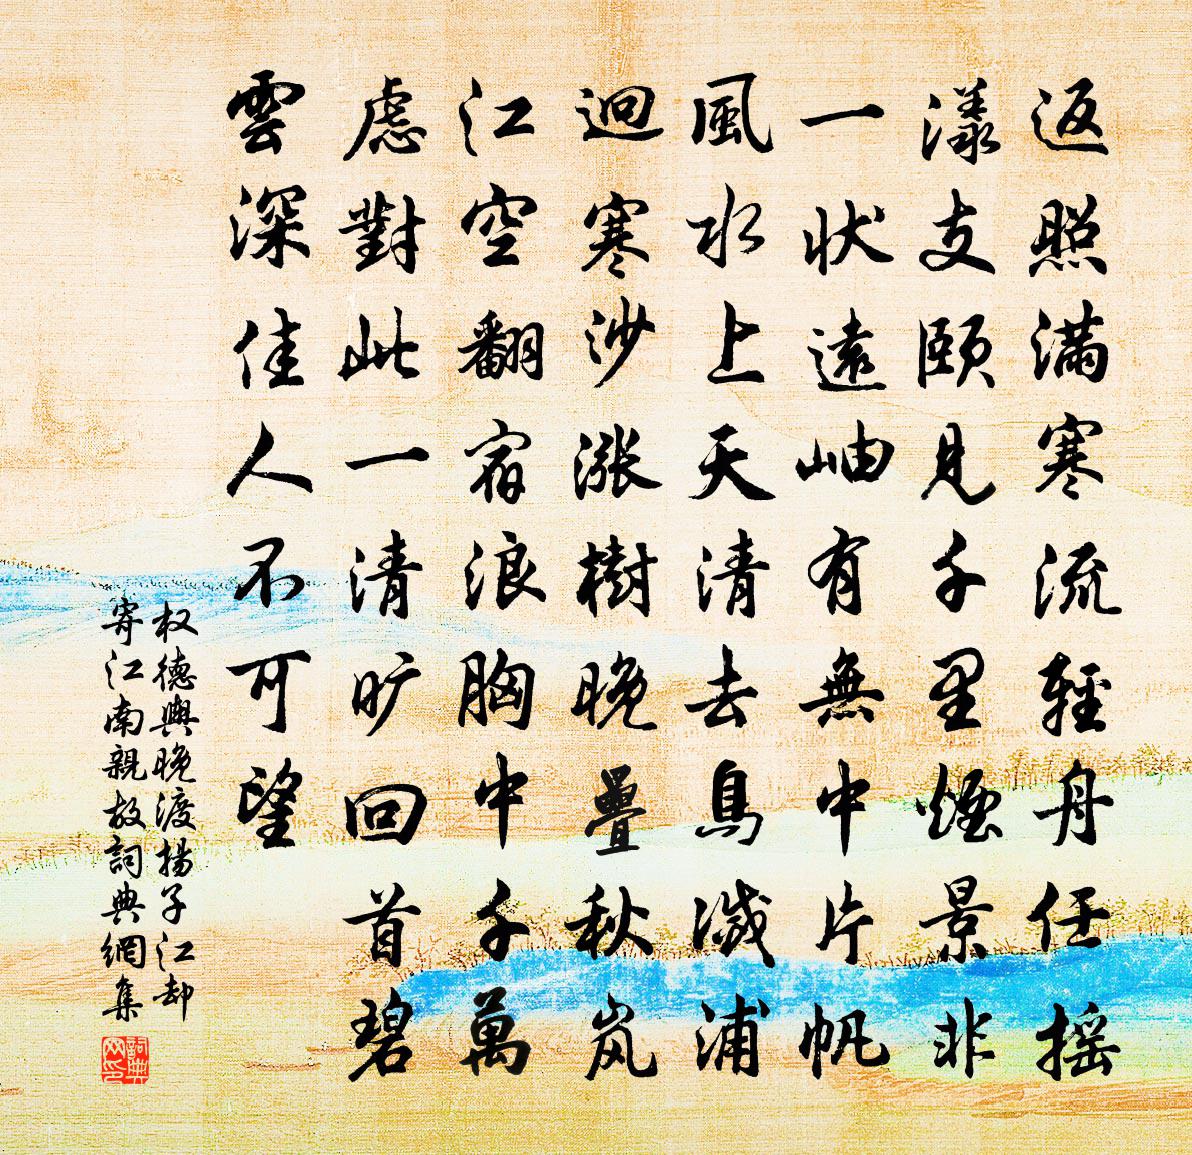 返照滿寒流輕舟任搖
漾支頤見千里煙景非
一狀遠岫有無中片帆
風水上天清去鳥滅浦
迥寒沙漲樹晚疊秋岚
江空翻宿浪胸中千萬
慮對此一清旷回首碧
雲深佳人不可望
权德輿晚渡揚子江却
寄江南親故詞典網集
詞典
网印